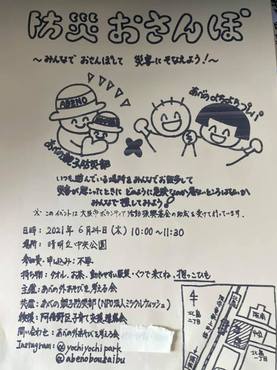 防災おさんぽ
～みんなで おさんぽして 災害にそなえよう！～
ABENO
あべの親子防災部
あべのよちよちパーク
いつも遊んでいる場所をみんなでお散歩して
災害が起こったときに
みんなで探してみよう
※このイベントは大阪市ボランティア活動振興基金の助成を受けて行っています。
日時：2021年6月24日(木) 10:00〜11:30
場所：明中央公園
参加費・申し込み：不要
持ち物：タオル、お茶、動きやすい服装・くつで来てね、抱っこひも
主催：あべの外あそびを考える会
共催：あべの親子防災部(NPO法人ミラクルウィッシュ)
後援：阿倍野区子育て支援連絡会
問い合わせ：あべの外あそびを考える会
Instagram：@yochiyochi park
@abenoboukaibu